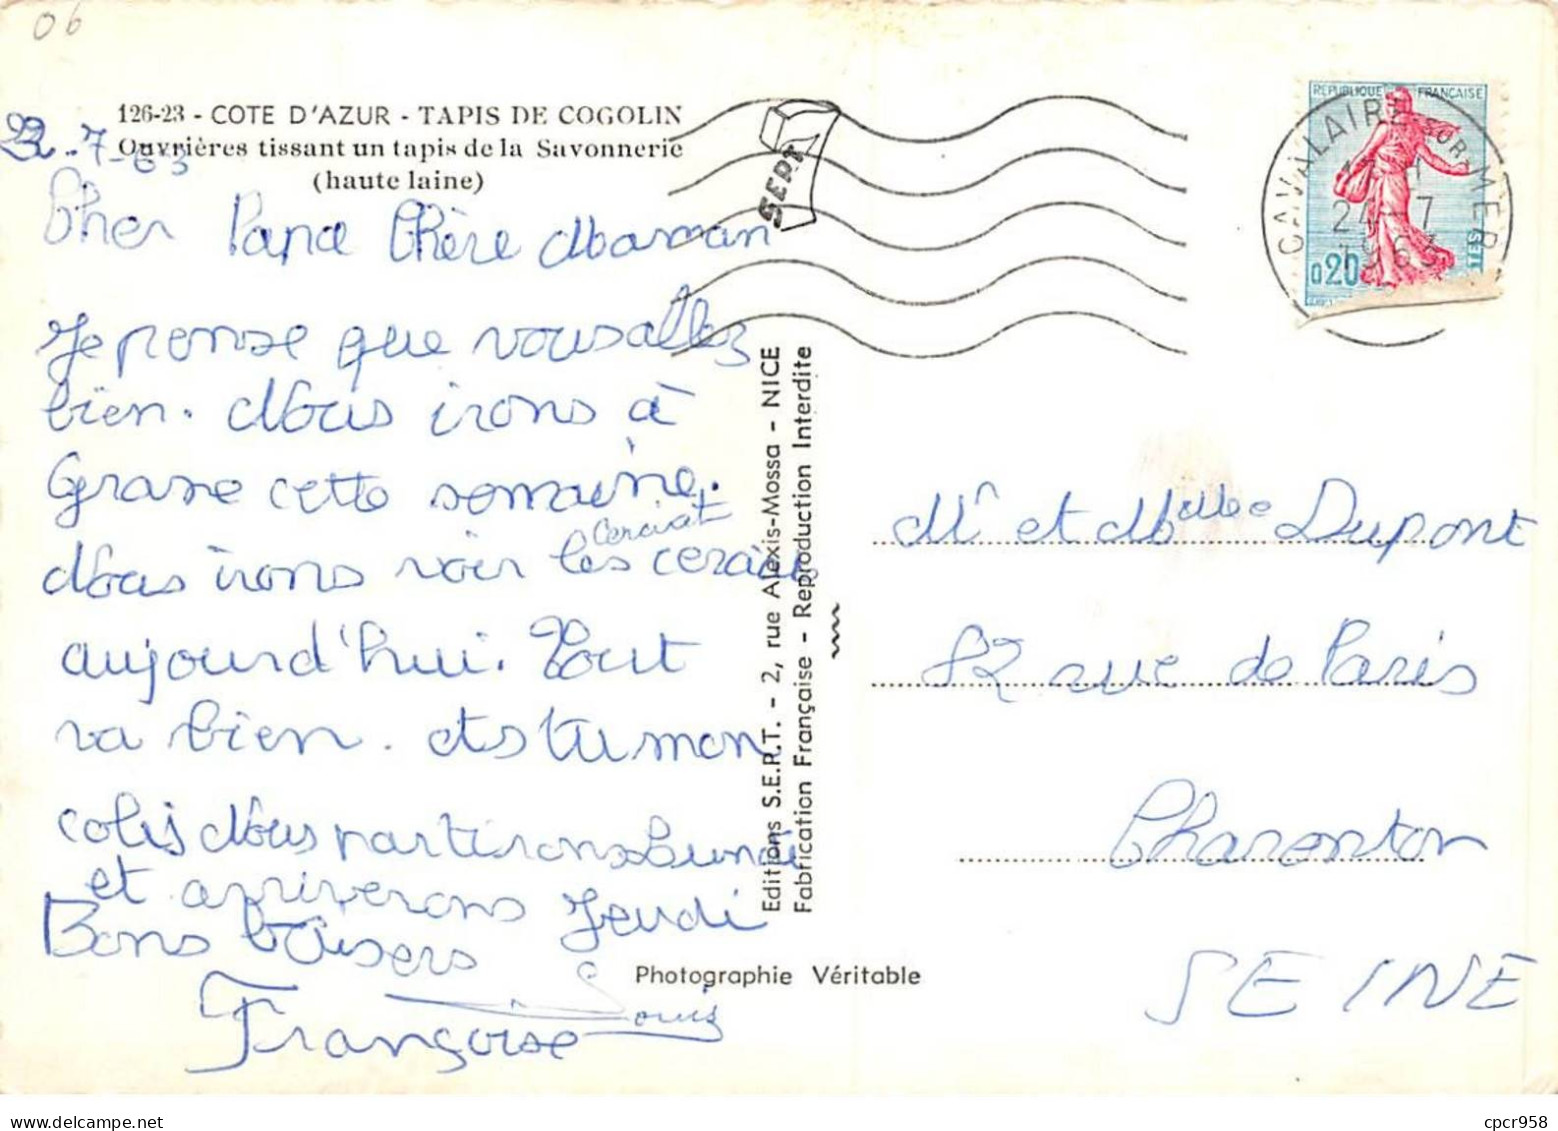 06
126-23 - COTE D'AZUR - TAPIS DE COGOLIN
Ouvrières tissant un tapis de la Savonnerie
(haute laine)
22-7-63
Cher Papa Chère Maman
Je pense que vous allez
bien. Nous irons à
Grasse cette semaine.
Cerciat
Nous irons voir les cerciat
aujourd'hui. Tout
va bien. As tu mon
colis Nous partirons Lundi
et arriverons Jeudi
Bons baisers
Louis
Françoise
SERT
Editions S.E.R.T. - 2, rue Alexis-Mossa - NICE
Fabrication Française - Reproduction Interdite
Photographie Véritable
REPUBLIQUE FRANÇAISE
0,20
POSTES
CAVALAIRE SUR MER
24-7
1963
Mr et Mme Dupont
82 rue de Paris
Charenton
SEINE
cpcr958